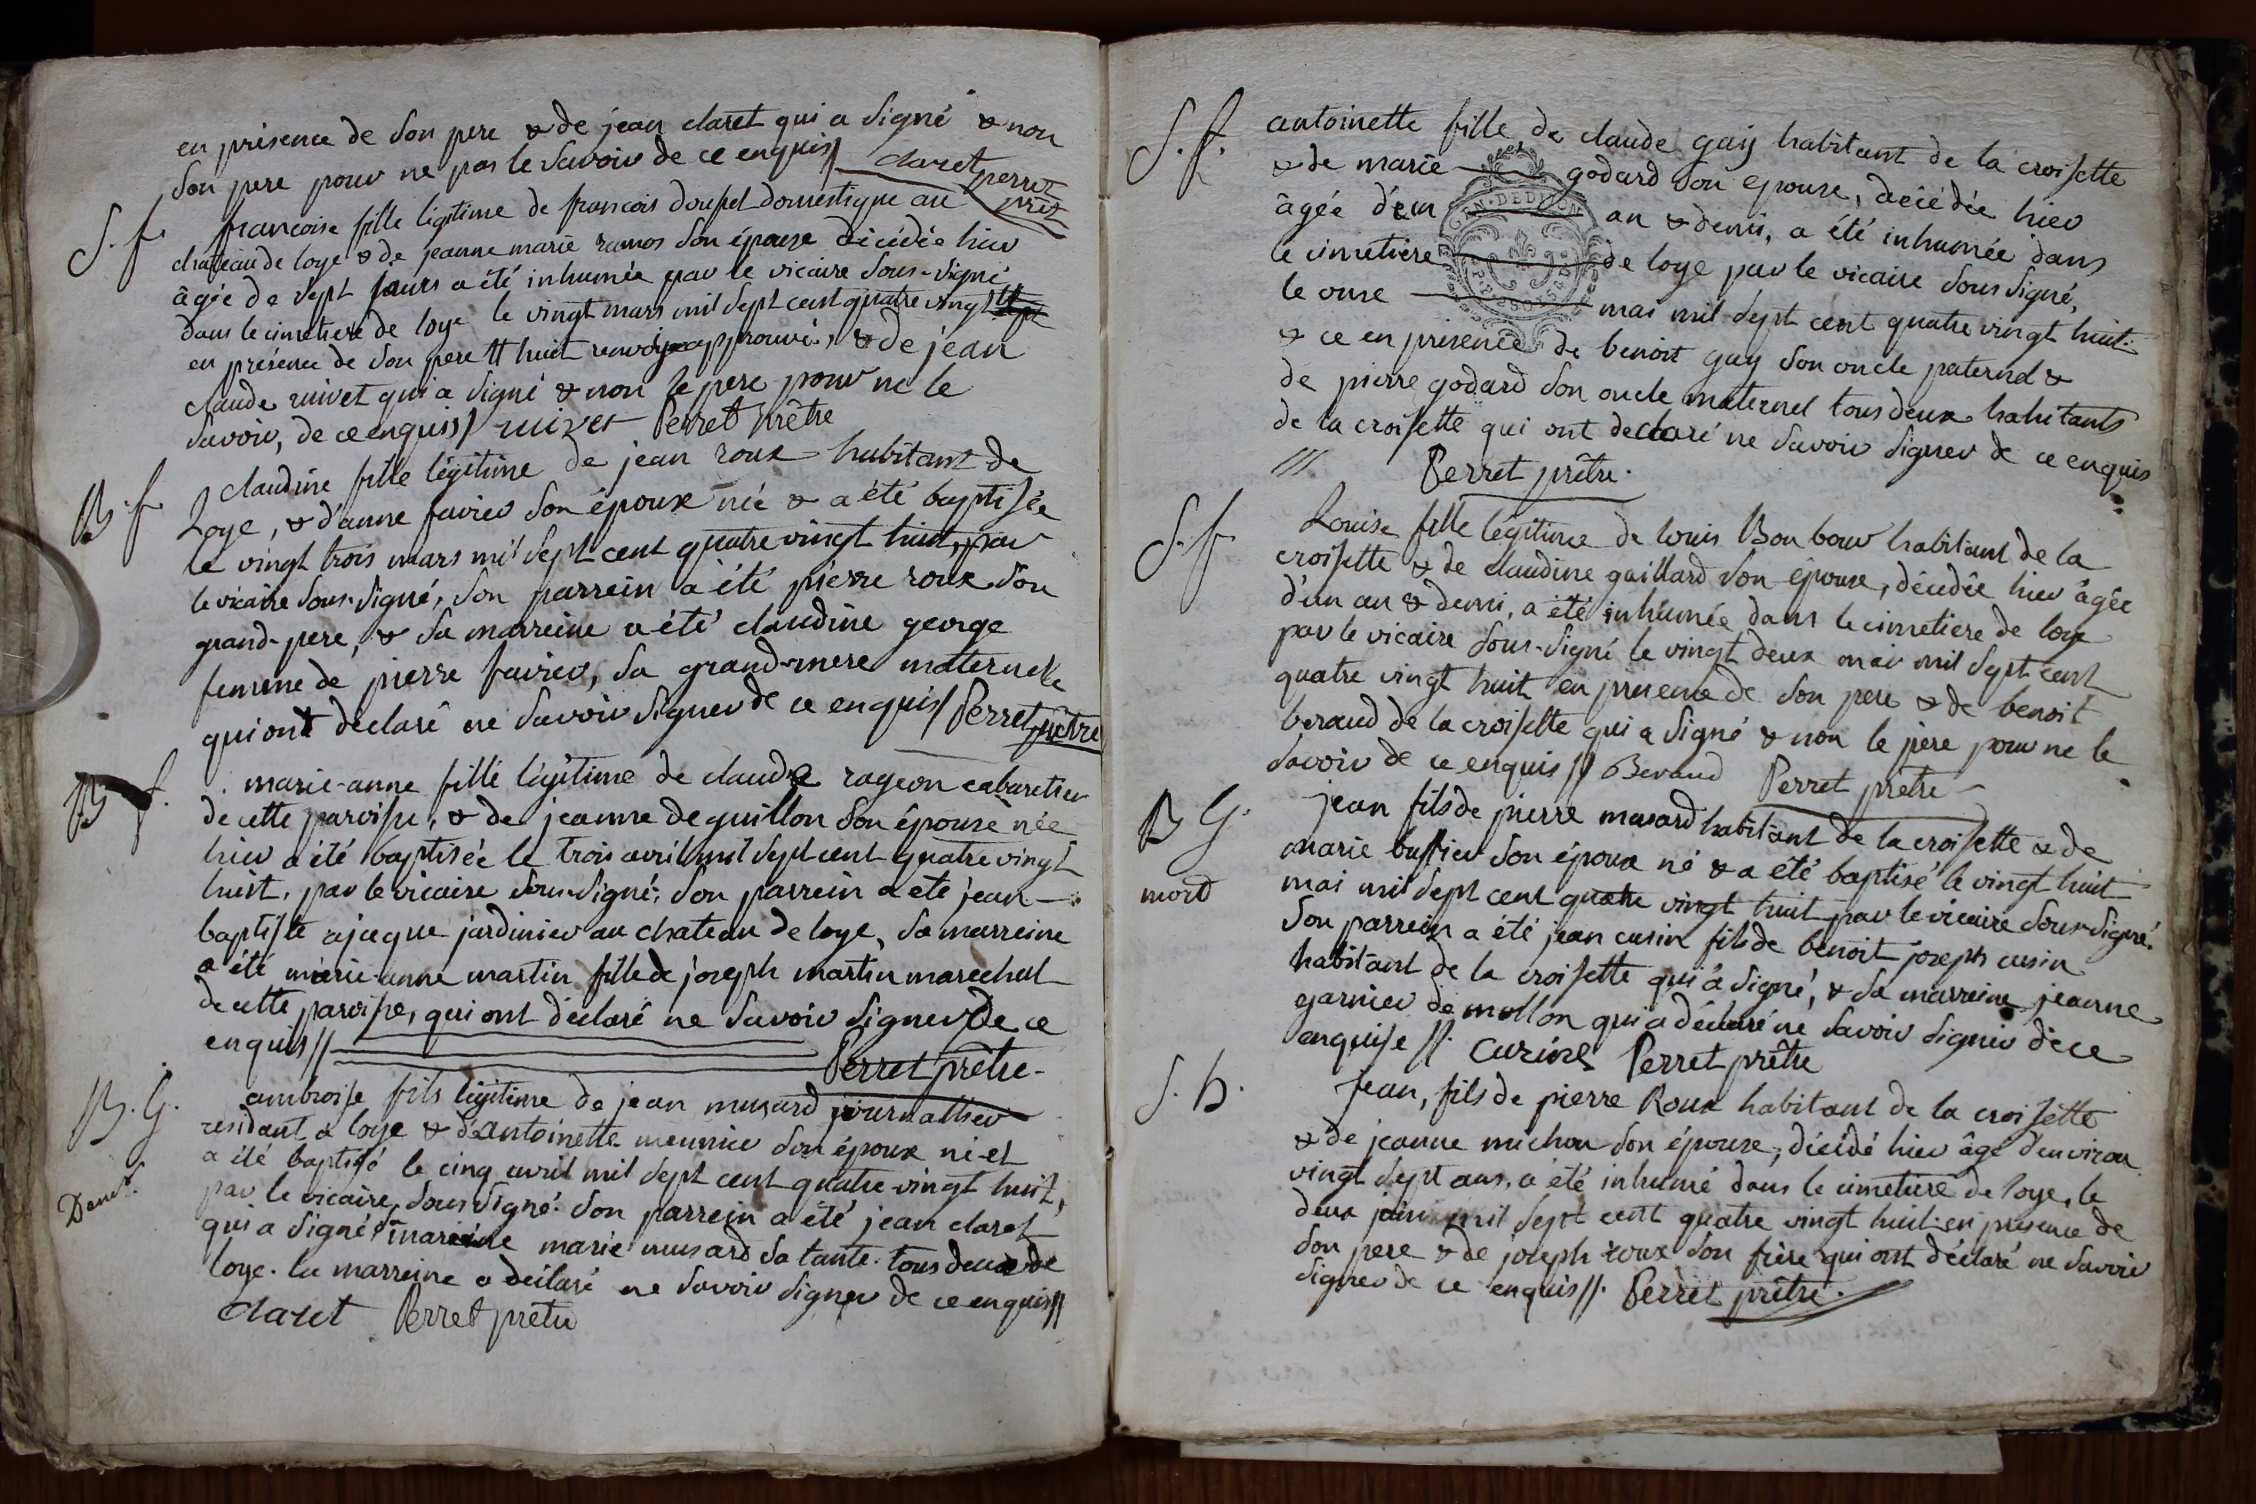 en présence de son pere & de jean claret qui a signé & non
son pere pour ne pas le savoir de ce enquis // claret perret
prêt
S. f. francoise fille légitime de francois doupel domestique au
chateau de loye & de jeanne marie ramos son épouse décédée hier
âgée de sept jours a été inhumée par le vicaire sous-signé
dans le cimetiere de loye le vingt mars mil sept cent quatre vingt sept
en présence de son pere # huit renvoye approuvé, & de jean
claude ruivet qui a signé & non le pere pour ne le
savoir, de ce enquis // ruivet Perret Prêtre
B. f. claudine fille légitime de jean roux habitant de
Loye, & d'anne favier son épouse née & a été baptisée
le vingt trois mars mil sept cent quatre vingt huit, par
le vicaire sous-signé, son parrein a été pierre roux son
grand-pere, & sa marreine a été claudine george
femme de pierre favier, sa grand-mere maternelle
qui ont déclaré ne savoir signer de ce enquis / Perret prêtre
B f. marie-anne fille légitime de claude rageon cabaretier
de cette paroisse, & de jeanne deguillon son épouse née
hier a été baptisée le trois avril mil sept cent quatre vingt
huit, par le vicaire sous-signé; son parrein a été jean
baptiste ajaque jardinier au chateau de loye, sa marreine
a été marie-anne martin fille de joseph martin marechal
de cette paroisse, qui ont déclaré ne savoir signer de ce
enquis //
Perret prêtre
B. G. ambroise fils légitime de jean musard journallier
residant a loye & d'antoinette meunier son épouse né et
a été baptisé le cinq avril mil sept cent quatre-vingt huit,
par le vicaire sous signé. son parrein a été jean claret
qui a signé & marreine marie musard sa tante. tous deux de
loye. la marreine a déclaré ne savoir signer de ce enquis //
claret Perret prêtre
S. f. antoinette fille de claude gay habitant de la croisette
& de marie godard son epouse, décédée hier
âgée d'un an & demi, a été inhumée dans
le cimetiere de loye par le vicaire sous signé,
le onze mai mil sept cent quatre vingt huit.
& ce en présence de benoit gay son oncle paternel &
de pierre godard son oncle maternel tous deux habitants
de la croisette qui ont declaré ne savoir signer de ce enquis
/// Perret prêtre.
GEN. DE DIJON
S. f. Louise fille légitime de louis Bonbour habitant de la
croisette & de claudine gaillard son épouse, décédée hier âgée
d'un an & demi, a été inhumée dans le cimetiere de loye
par le vicaire sous-signé le vingt deux mai mil sept cent
quatre vingt huit en présence de son pere & de benoit
beraud de la croisette qui a signé & non le pere pour ne le
savoir de ce enquis // Beraud Perret prêtre
B G. jean fils de pierre musard habitant de la croisette & de
marie bussier son épouse né & a été baptisé le vingt huit
mort mai mil sept cent quatre vingt huit par le vicaire sous-signé.
son parrein a été jean cusin fils de benoit joseph cusin
habitant de la croisette qui a signé, & sa marreine jeanne
garnier de mollon qui a déclaré ne savoir signer de ce
enquise //. Perret prêtre
S. h. Jean, fils de pierre Roux habitant de la croisette
& de jeanne michon son épouse, décédé hier âgé d'environ
vingt sept ans, a été inhumé dans le cimetiere de loye, le
deux juin mil sept cent quatre vingt huit en présence de
son pere & de joseph roux son frère qui ont déclaré ne savoir
signer de ce enquis //. Perret prêtre.